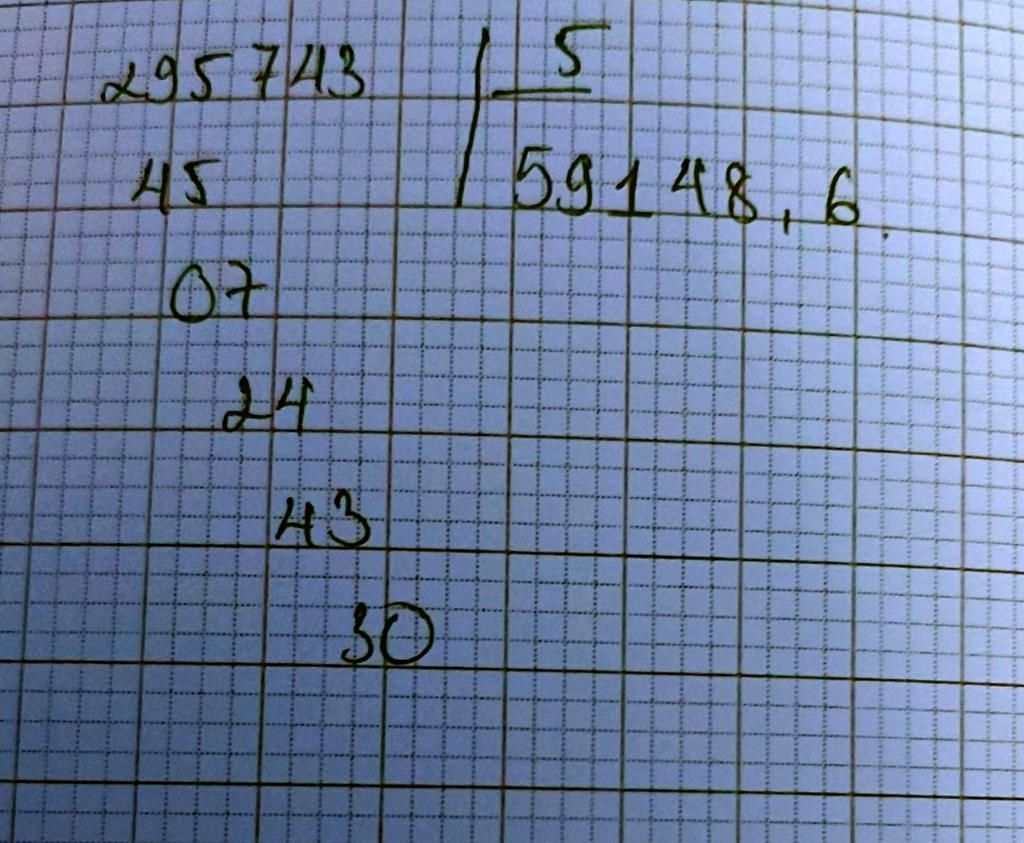 295743 5
45 59148,6.
07
24
43
30